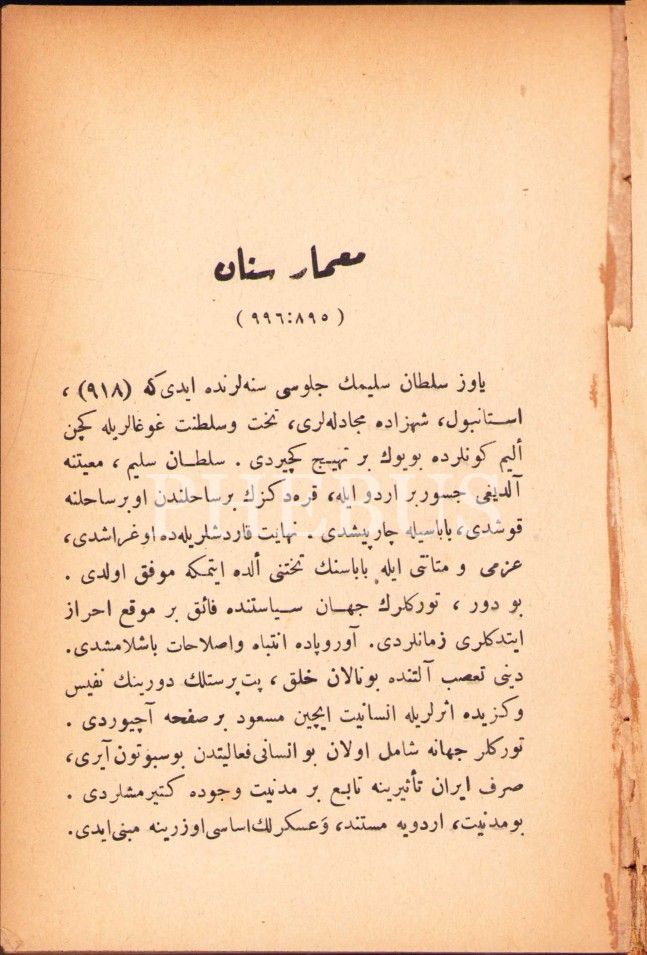 معمار سنان
( ٨٩٥ : ٩٩٦ )
ياوز سلطان سليمك جلوسى سنه‌لرنده ايدى كه (٩١٨) ،
استانبول، شهزاده مجادله‌لرى، تخت وسلطنت غوغالريله كچن
أليم كونلرده بويوك بر تهيج كچيردى . سلطان سليم ، معيتنه
آلديغى جسور بر اردو ايله، قره‌دكزك بر ساحلندن اوبر ساحلنه
قوشدى، باباسيله چارپيشدى . نهايت قاردشلريله ده اوغراشدى،
عزمى و متانتى ايله باباسنك تختنى ألده ايتمكه موفق اولدى .
بو دور ، توركلرك جهان سياستنده فائق بر موقع احراز
ايتدكلرى زمانلردى. آوروپاده انتباه واصلاحات باشلامشدى.
دينى تعصب آلتنده بونالان خلق ، پت پرستلك دورينك نفيس
وكزيده اثرلريله انسانيت ايچين مسعود بر صفحه آچيوردى .
توركلر جهانه شامل اولان بو انسانى فعاليتدن بوسبوتون آيرى،
صرف ايران تأثيرينه تابع بر مدنيت وجوده كتيرمشلردى .
بو مدنيت، اردويه مستند، وَعسكرلك اساسى اوزرينه مبنى ايدى.
PHEBUS